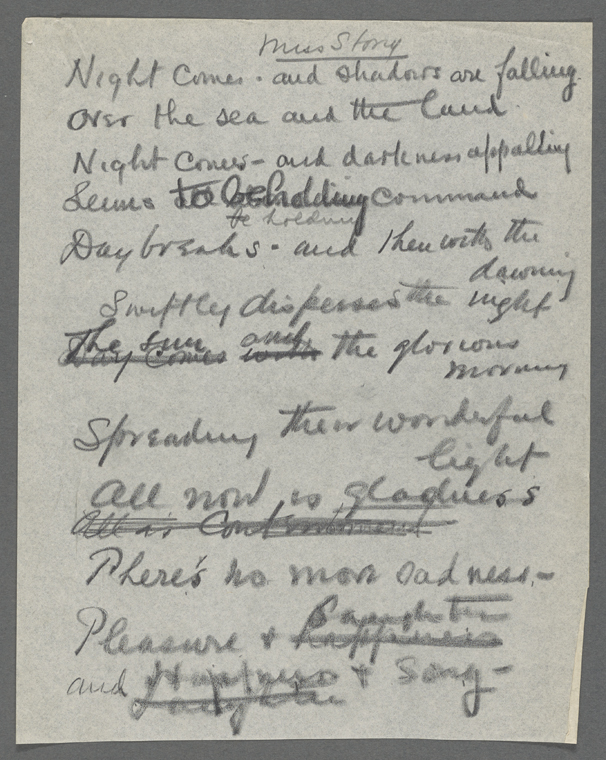 Miss Story
Night comes - and shadows are falling
Over the sea and the land.
Night comes - and darkness appalling
Seems to be holding command
be holding
Day breaks - and then with the
dawning
Swiftly disperses the night
The sun and
Day comes with the glorious
morning
Spreading their wonderful
light
All now is gladness
All is Contentment
There's no more sadness -
Laughter
Pleasure & happiness
and Happiness & Song -
Laughter